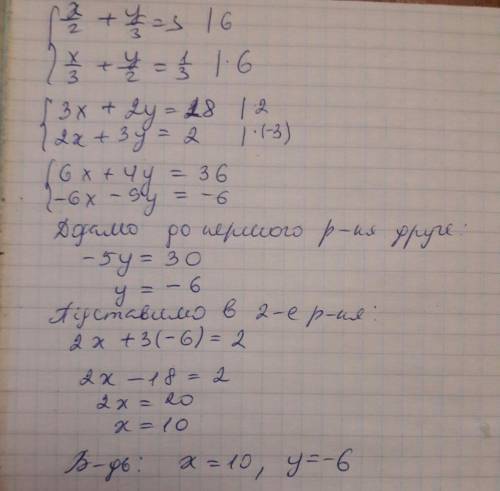 x/2 + y/3 = 3 | 6
x/3 + y/2 = 1/3 | · 6
3x + 2y = 18 | · 2
2x + 3y = 2 | · (-3)
6x + 4y = 36
-6x - 9y = -6
Ддамо до первого р-ня друге:
-5y = 30
y = -6
Підставимо в 2-е р-ня:
2x + 3(-6) = 2
2x - 18 = 2
2x = 20
x = 10
В-дь: x = 10, y = -6